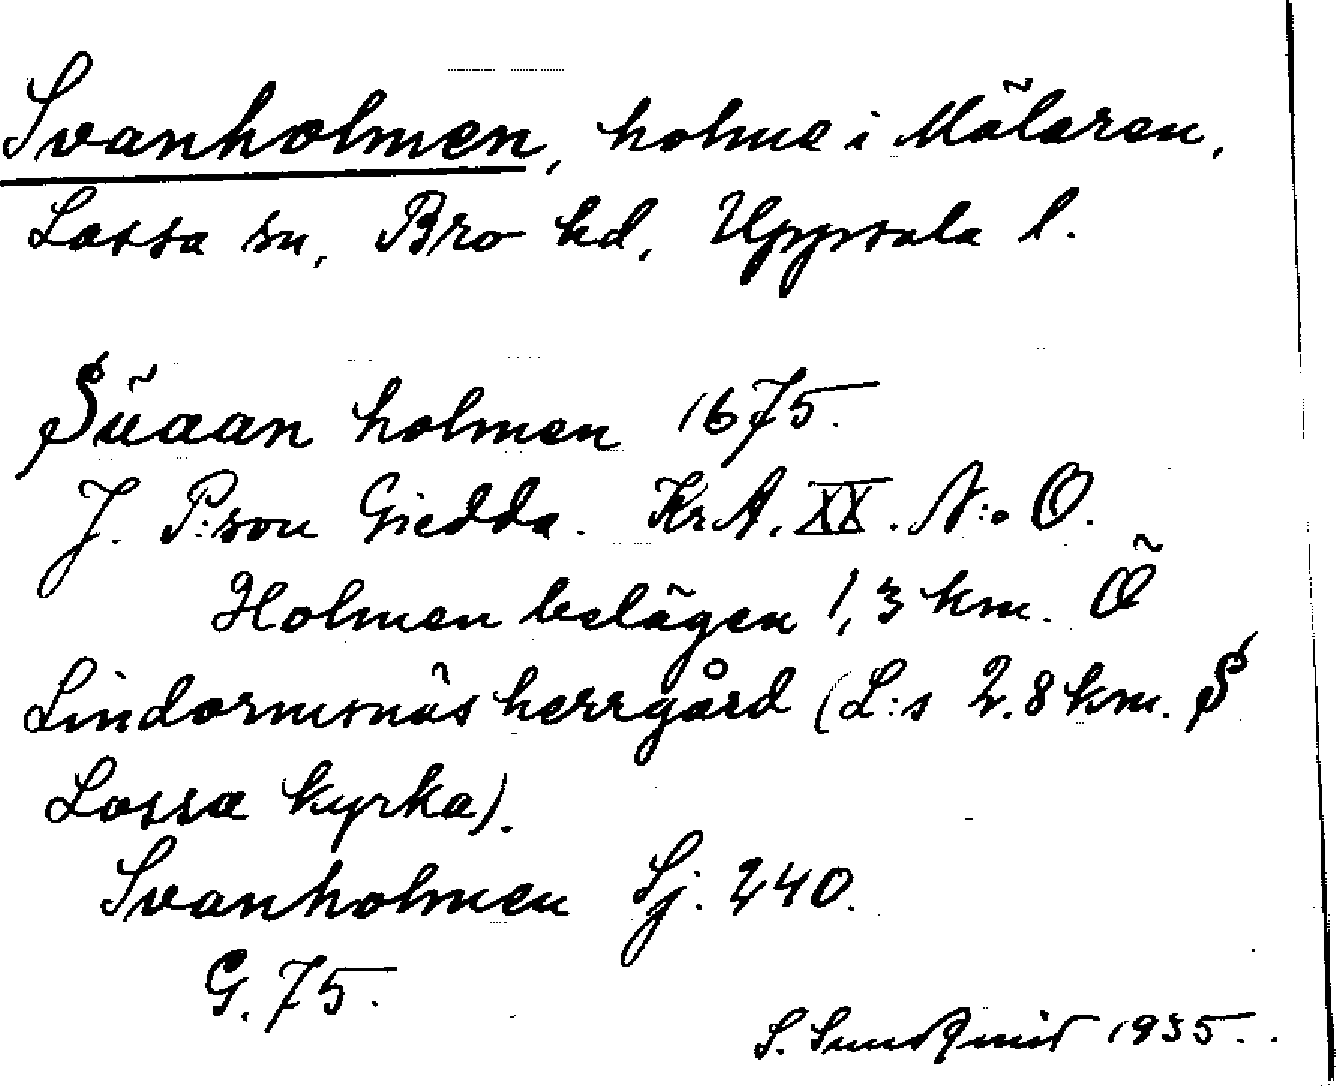 Svanholmen, holme i Mälaren,
Lossa sn, Bro hd, Uppsala l.
Süaan holmen 1675.
J. P:son Giedda. KrA. XX. N:o O.
Holmen belägen 1,3 km. Ö
Lindormsnäs herrgård (L:s 2.8 km. S
Lossa kyrka).
Svanholmen Sj. 240.
G. 75.
S. Sundquist 1935.